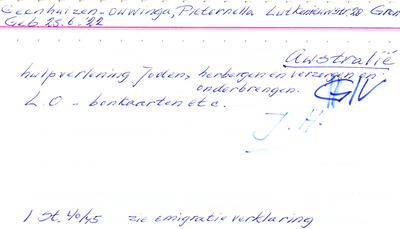 Geenhuizen-Ouwinga, Pieternella Lutkenieuwstr. 28 Gron
Geb 25.6.22
Australië
hulpverlening Joden, herbergen en verzorgen en
onderbrengen.
L.O - bonkaarten etc.
J.H.
1 St. 40/45 zie emigratieverklaring